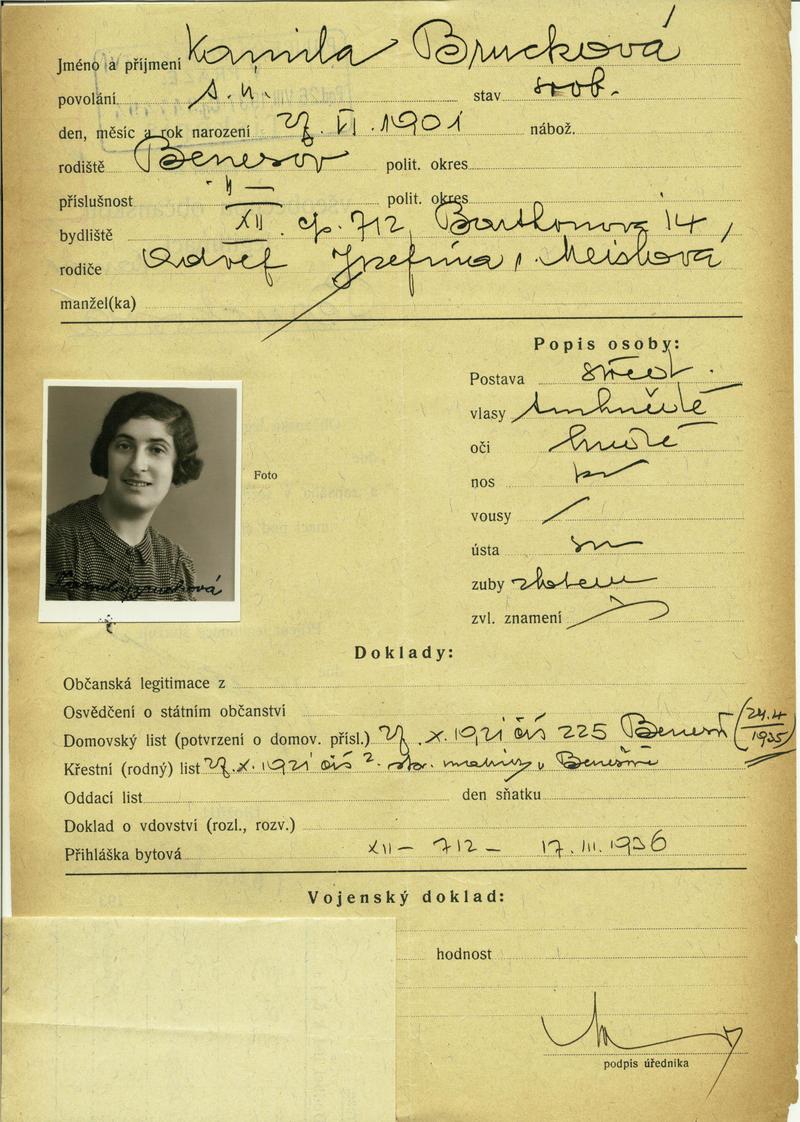 Jméno a příjmení Kamila Brucková
povolání s. u. stav svob.
den, měsíc a rok narození 27. VI. 1901 nábož.
rodiště Benešov polit. okres
příslušnost -"- polit. okres
bydliště XII. čp. 712, Barthonova 14,
rodiče Josefina,
manžel(ka)
Popis osoby:
Postava střed.
vlasy
oči hnědé
nos
vousy /
Foto
ústa
zuby
zvl. znamení
Kamila Brucková
Doklady:
Občanská legitimace z
Osvědčení o státním občanství
Domovský list (potvrzení o domov. přísl.) 27. X. 1921 čís 225 Benešov (24.4 1935)
Křestní (rodný) list 27. X. 1921 čís 2. matriky v Benešově
Oddací list den sňatku
Doklad o vdovství (rozl., rozv.)
Přihláška bytová XII - 712 - 17. III. 1936
Vojenský doklad:
hodnost
podpis úředníka